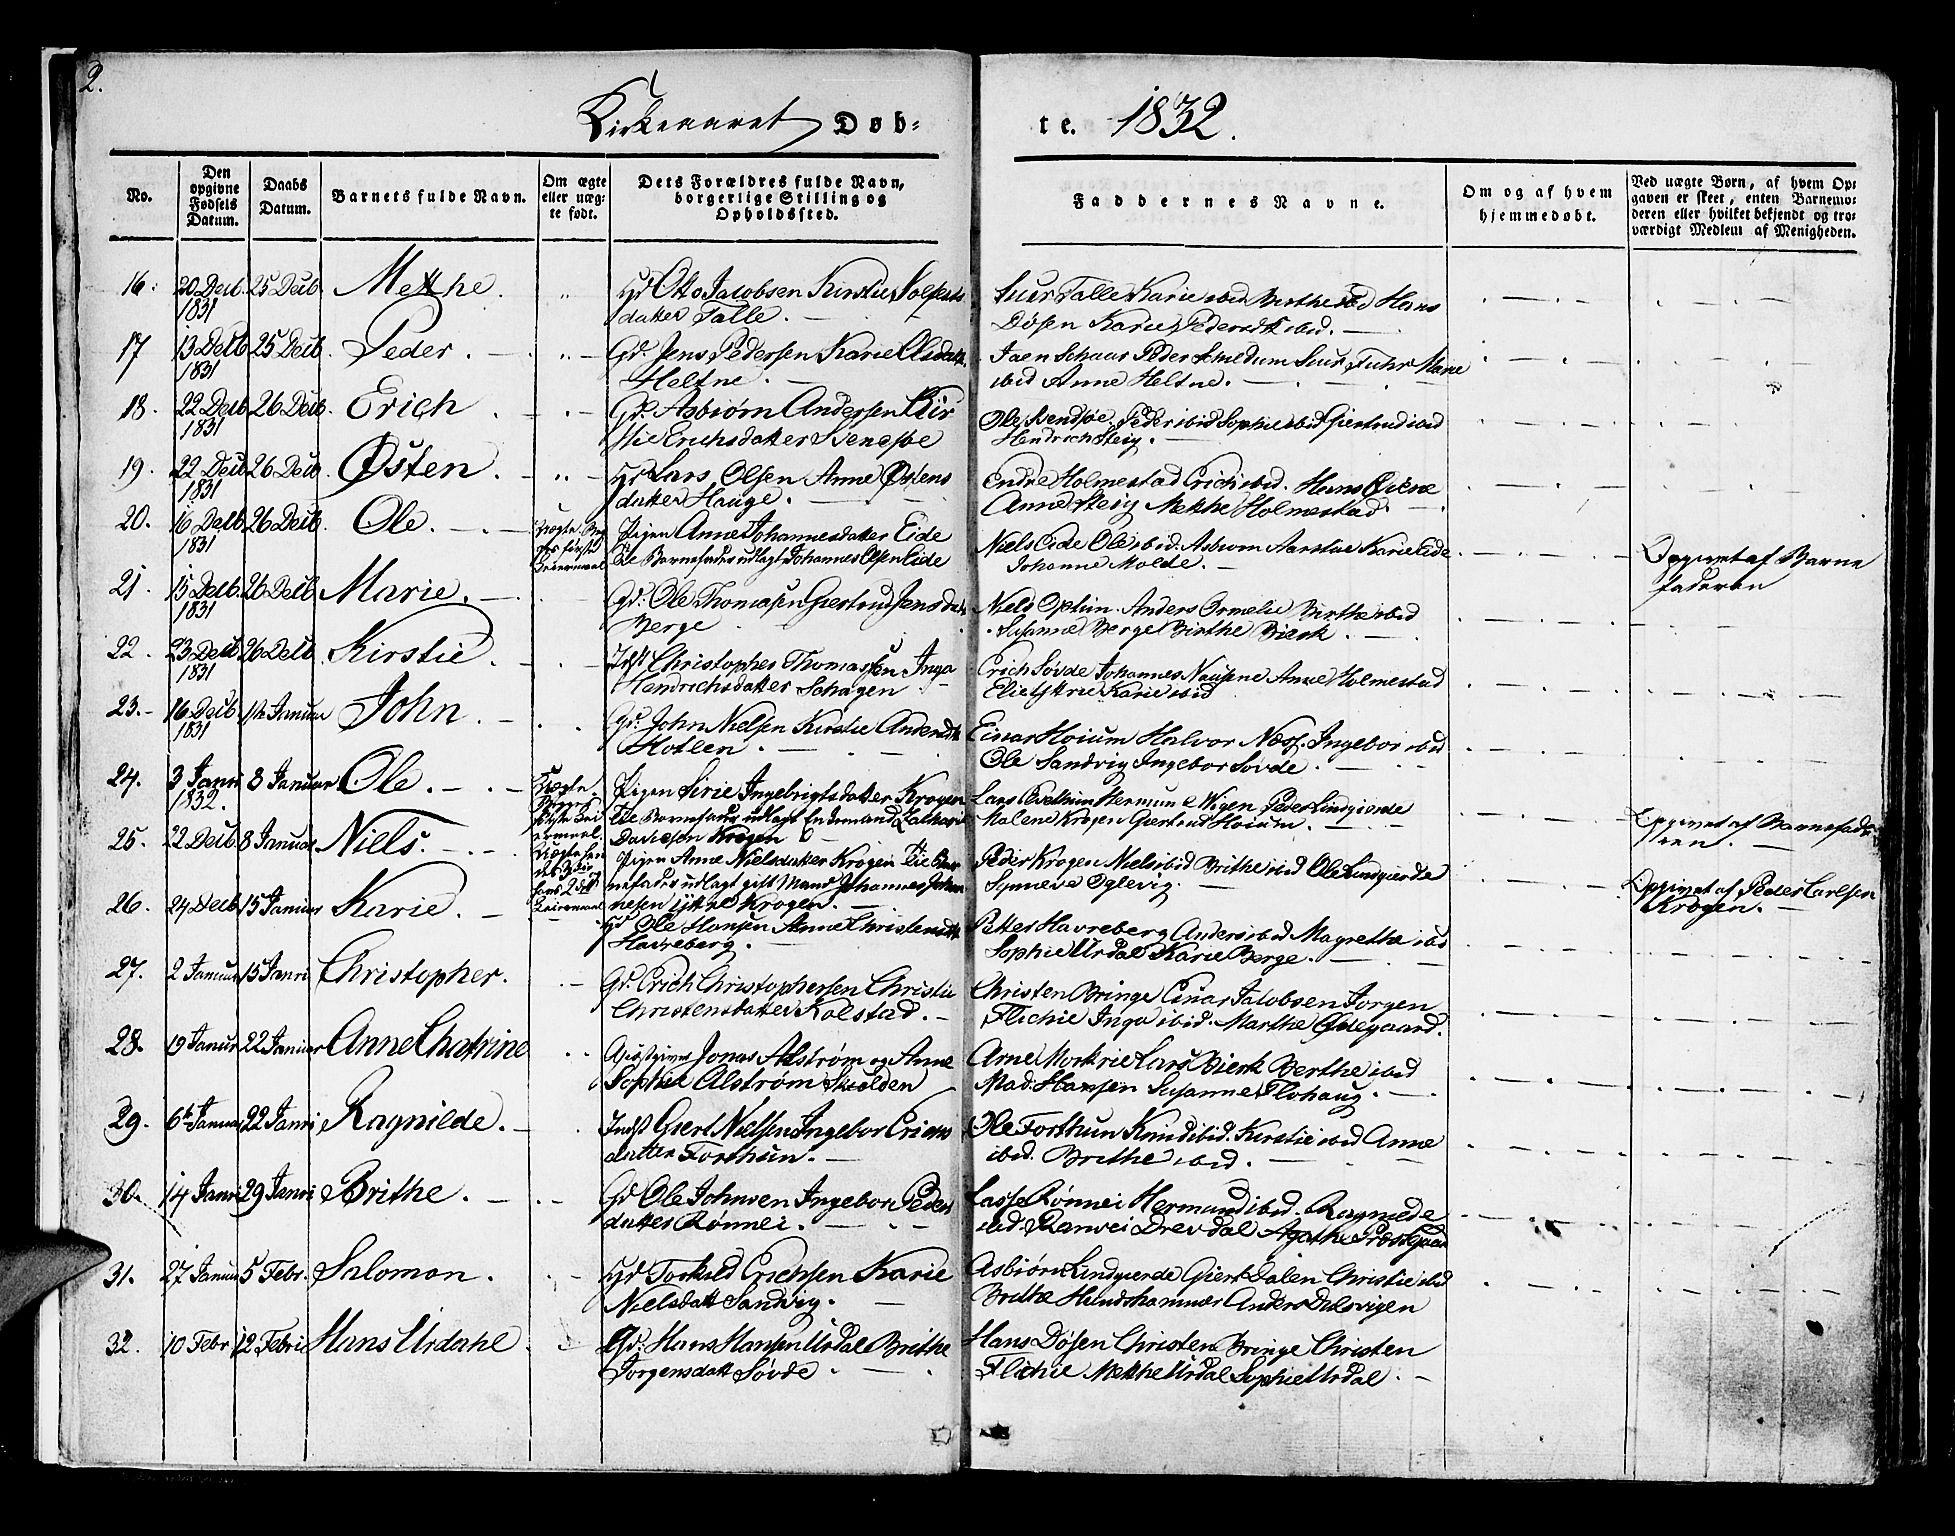 2.
Kirkeaaret Døb-
te. 1832.
No.
Den opgivne Fødsels Datum.
Daabs Datum.
Barnets fulde Navn.
Om ægte eller uægte født.
Dets Forældres fulde Navn, borgerlige Stilling og Opholdssted.
Faddernes Navne.
Om og af hvem hjemmedøbt.
Ved uægte Børn, af hvem Opgaven er skeet, enten Barnemoderen eller hvilket bekjendt og troværdigt Medlem af Menigheden.
16. 20 Decb. 25 Decb. Methe. Gd Otto Jacobsen Kirstie
1831 datter Falle.
Siur Falle Karie ibid Birthe ibid Hans
Døsen Karie Pedersdtr ibid.
17 13 Decb 25 Decb Peder. Gd. Jens Pedersen Karie Olsdatt.
1831 Heltne.
Peder Siur Fuhr Marie
ibid Anne Heltne.
18. 22 Decb 26 Decb Erich Gd. Asbiørn Andersen Kir
1831 stie Erichsdatter
Ole Peder ibid Sophie ibid Giertrud ibid
Hendrich Steig.
19. 22 Decb 26 Decb Østen. Gd Lars Olsen Anne Østens
1831 datter Hauge.
Endre Holmestad Erich ibid. Hans
Anne Steig Methe Holmestad
20. 16 Decb 26 Decb. Ole. Uægte Pigen Anne Johannesdatter Eide
1831 første Leiermaal til Barnefader udlagt Johannes Olsen Eide
Niels Eide Ole ibid. Asbiørn Karie Eide
Johanne Molde.
Opgivet af Barne
faderen
21. 15 Decb. 26 Decb. Marie. Gd. Ole Thomasen Giertrud Jensdatt
1831 Berge
Niels Optun. Anders Ormelie Birthe ibid
Susanne Berge Birthe
22. 23 Decb 26 Decb. Kirstie. Indst Christopher Thomassen Inga
1831 Hendrichsdatter Schagen
Erich Søvde Johannes Anne Holmestad
Karie ibid
23. 16 Decb. 1ste Januar John. Gd. John Nielsen Kirstie Andersdtr
1831
Einar Hoium Halvor Næss. Ingebor ibid
Ole Sandvig Ingebor Søvde.
24. 3 Janri 8 Januar Ole. Uægte Pigen Sirie Ingebrigtsdatter Krogen
1832. til Barnefader udlagt Enkemand
Davidsen Krogen
Lars Hermund Peder Lindgierde
Malene Krogen Giertrud Hoium.
Opgivet af Barnefade
ren.
25. 22 Decb 8 Januar Niels. Uægte Pigen Anne Nielsdatter Krogen til Bar
nefader udlagt gift Mand Johannes Johan
nesen Krogen.
Peder Krogen Niels ibid Brithe ibid Ole Lindgierde
Synneve
Opgivet af Peder Carlsen
Krogen.
26. 24 Decb 15 Januar Karie. Gd Ole Hansen Anne Christensdtr
Havreberg.
Petter Havreberg Anders ibid Magrethe ibid
Sophie Urdal Karie Berge.
27. 2 Januar 15 Janri Christopher. Gd. Erich Christophersen Christie
Christensdatter Kolstad.
Christen Bringe Einar Jacobsen Jorgen
Flichie Inga ibid. Marthe Ødegaard.
28. 19 Januar 22 Januar Anne Chatrine Giestgiver Jonas Alstrøm og Anne
Sophie Alstrøm Skiolden
Arne Morkrie Lars Bierk Berthe ibid
Mad. Hansen Susanne Flohaug.
29. 6te Januar 22 Janri Ragnilde. Indst Giert Nielsen Ingebor Erichs
datter Forthun.
Ole Forthun Knud ibid. Kirstie ibid Anne
ibid. Brithe ibid.
30. 14 Janri 29 Janri Brithe. Gd Ole Johnsen Ingebor Peders
datter Rønnei.
Lasse Rønnei Hermund ibid. Ragnilde
ibid. Ranvei Drevdal Agathe Præstegaar
31. 27 Januar 5 Febr. Salomon. Gd Torkild Erichsen Karie
Nielsdatt Sandvig.
Asbiørn Lindgierde Giert Dalen Christie ibid
Brithe Anders Dalsvigen
32. 10 Febr 12 Febri Hans Urdahl Gd. Hans Hansen Urdal Brithe
Jorgensdatt Søvde.
Hans Døsen Christen Bringe Christen
Flichie Methe Urdal Sophie Urdal.